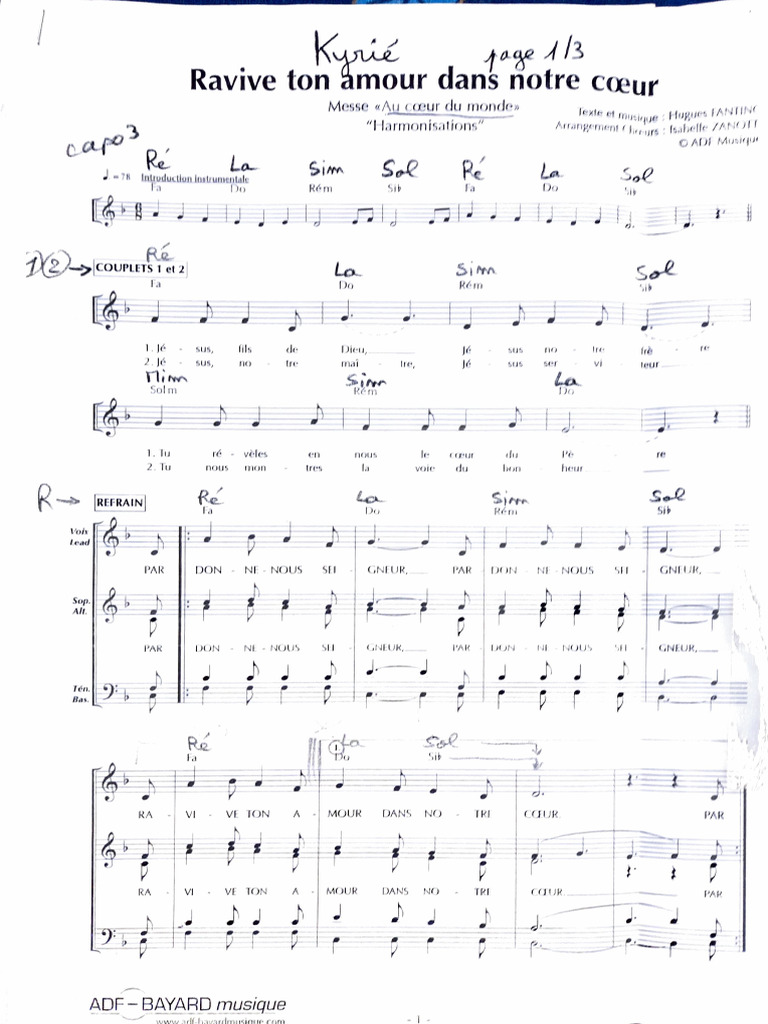 Kyrié page 1/3
Ravive ton amour dans notre cœur
Messe «Au cœur du monde»
"Harmonisations"
Texte et musique : Hugues FANTINO
Arrangement Chœurs : Isabelle ZANOTTI
© ADF Musique
capo 3
Ré La Sim Sol Ré La Sol
♩ = 78 Introduction instrumentale
Fa Do Rém Si♭ Fa Do Si♭
1) 2) → COUPLETS 1 et 2
Ré La Sim Sol
Fa Do Rém Si♭
1. Jé - sus, fils de Dieu,____ Jé - sus no - tre frè - re
2. Jé - sus, no - tre maî - tre, Jé - sus ser - vi - teur____
Mim Sim La
Solm Rém Do
1. Tu ré - vèles en nous le cœur du Pè - re
2. Tu nous mon - tres la voie du bon - heur____
R → REFRAIN
Ré La Sim Sol
Fa Do Rém Si♭
Voix Lead
PAR DON - NE - NOUS SEI - GNEUR,____ PAR - DON - NE - NOUS SEI - GNEUR,____
Sop. Alt.
PAR DON - NE - NOUS SEI - GNEUR,____ PAR - DON - NE - NOUS SEI - GNEUR,____
Tén. Bas.
Ré 1 La Sol
Fa Do Si♭
RA - VI - VE TON A - MOUR DANS NO - TRE CŒUR PAR
RA - VI - VE TON A - MOUR DANS NO - TRE CŒUR____ PAR
ADF – BAYARD musique
www.adf-bayardmusique.com
- 1 -